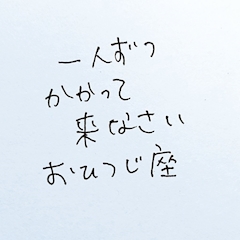 一人ずつ
かかって
来なさい
おひつじ座